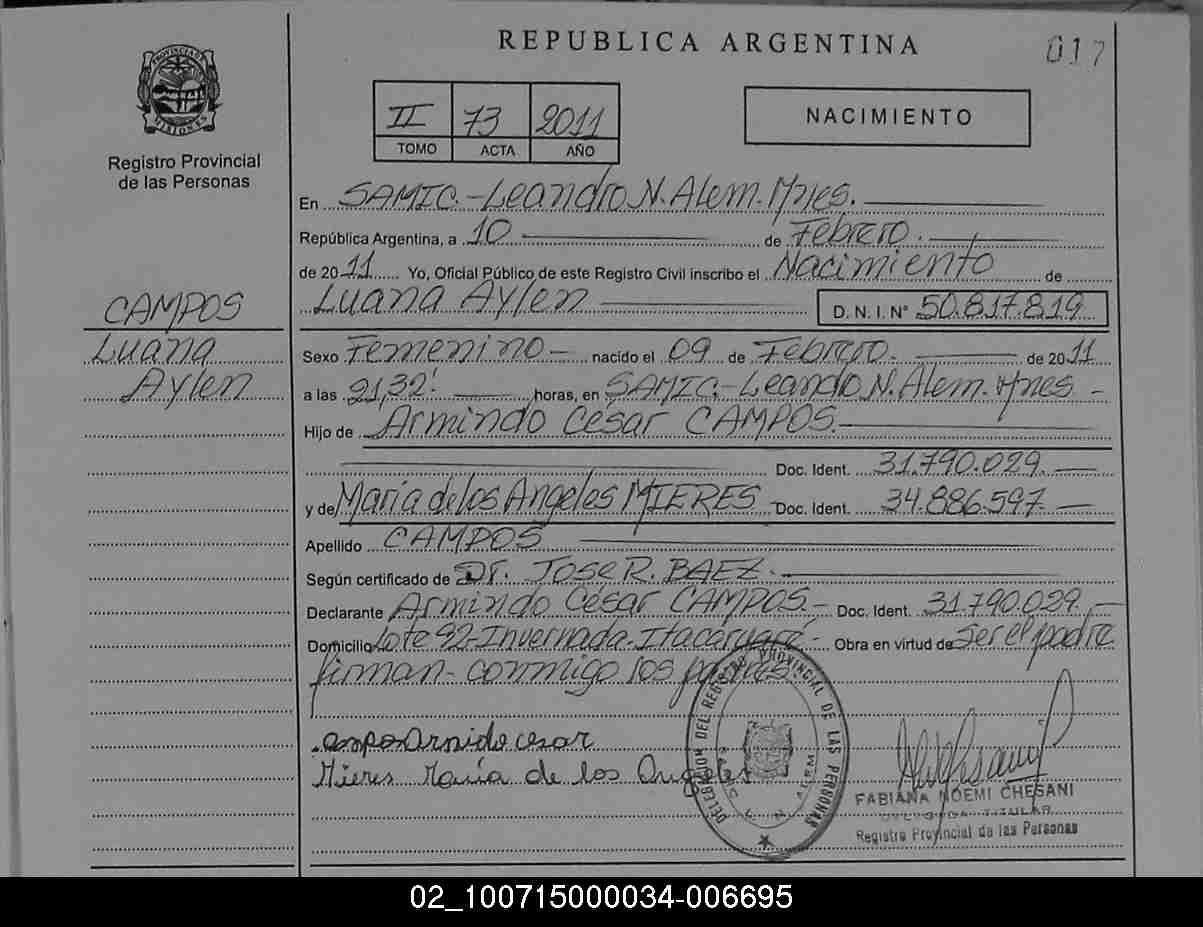 REPUBLICA ARGENTINA
017
PROVINCIA DE MISIONES
Registro Provincial
de las Personas
II 73 2011
TOMO ACTA AÑO
NACIMIENTO
En SAMIC.-Leandro N. Alem. Mnes.
República Argentina, a 10 de Febrero.
de 2011 Yo, Oficial Público de este Registro Civil inscribo el Nacimiento de
Luana Aylen D.N.I. N° 50.817.819
CAMPOS
Luana
Aylen
Sexo Femenino - nacido el 09 de Febrero. de 2011
a las 21,32' horas, en SAMIC.-Leandro N. Alem. Mnes -
Hijo de Armindo César CAMPOS.
Doc. Ident. 31.790.029.
y de María de los Angeles MIERES Doc. Ident. 34.886.597.
Apellido CAMPOS
Según certificado de Dr. JOSE R. BAEZ.
Declarante Armindo César CAMPOS.- Doc. Ident. 31.790.029.
Domicilio Lote 92-Invernada-Itacaruaré.- Obra en virtud de Ser el padre
firman- conmigo los padres
campos Arnido cesar
Mieres María de los Angeles
DELEGACION DEL REGISTRO PROVINCIAL DE LAS PERSONAS
L. N. ALEM
FABIANA NOEMI CHESANI
DELEGADA TITULAR
Registro Provincial de las Personas
02_100715000034-006695